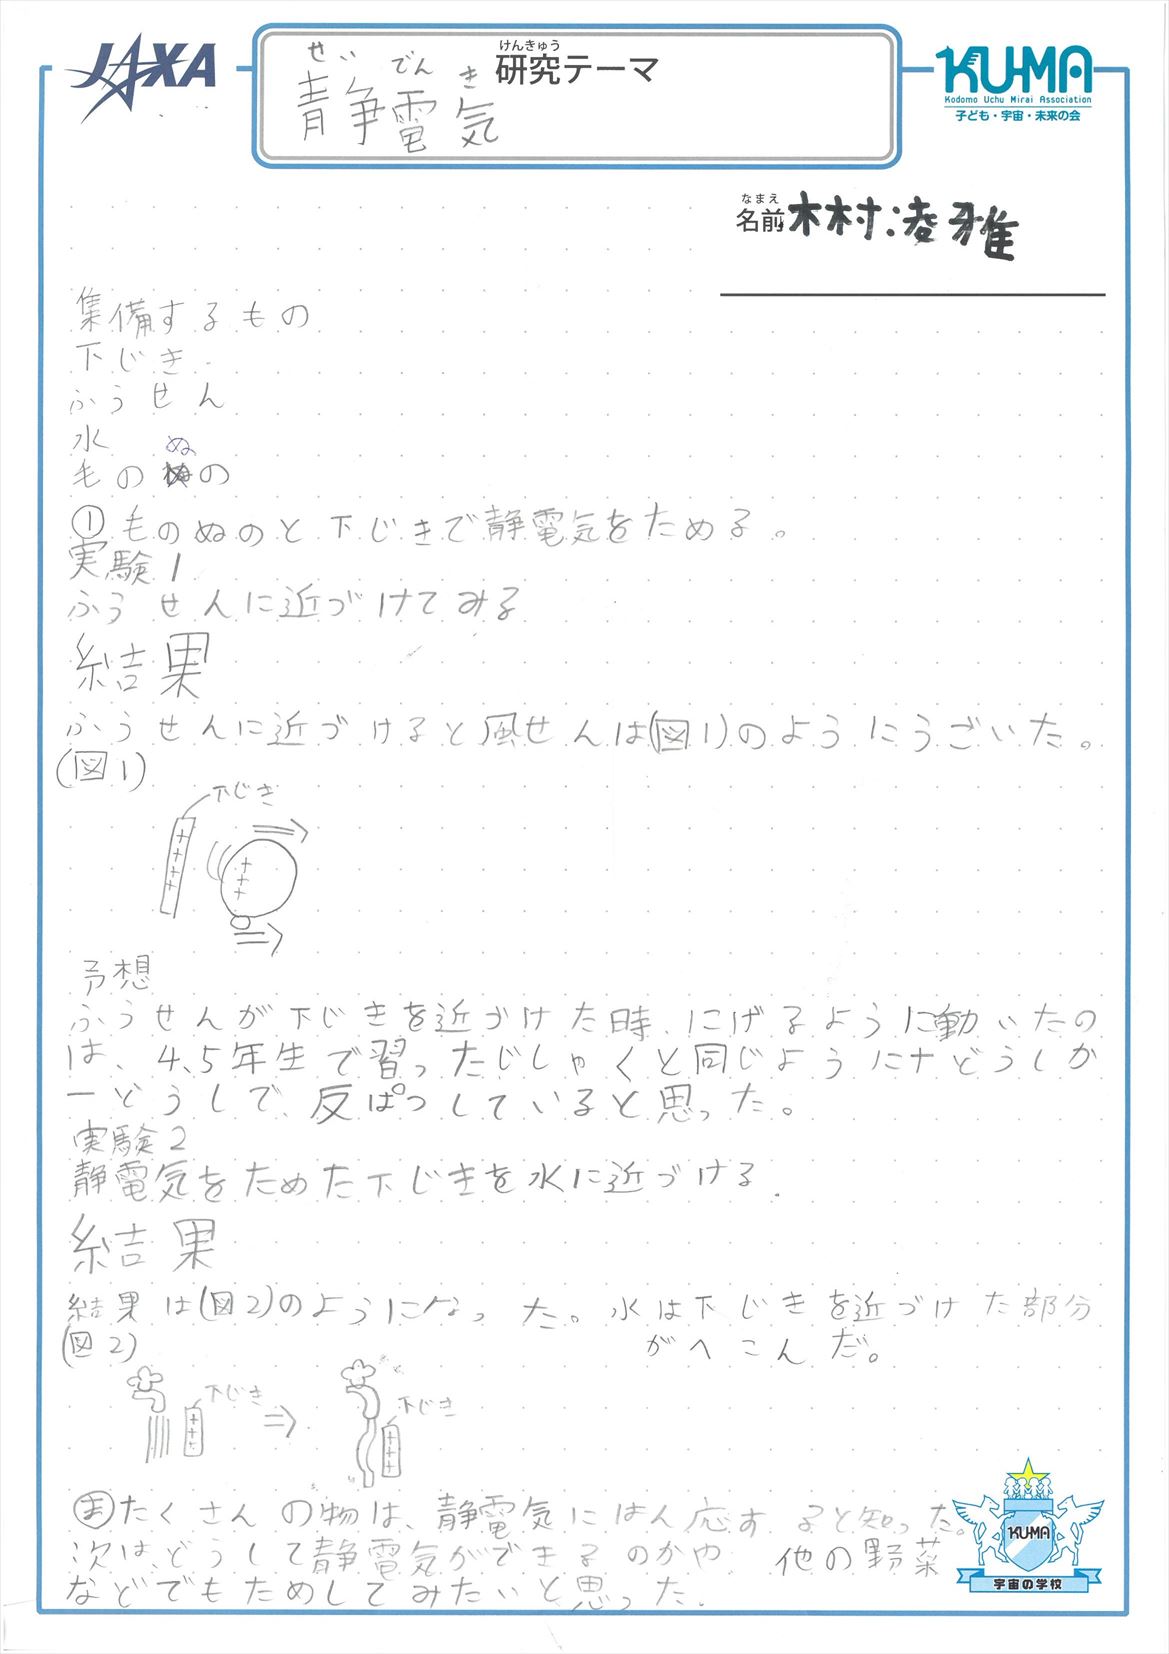 JAXA
けんきゅう
研究テーマ
せいでんき
静電気
KU-MA
Kodomo Uchu Mirai Association
子ども・宇宙・未来の会
なまえ
名前 木村凌雅
集備するもの
下じき
ふうせん
水
ぬ
毛のぬの
①毛のぬのと下じきで静電気をためる。
実験1
ふうせんに近づけてみる
結果
ふうせんに近づけると風せんは(図1)のようにうごいた。
(図1)
下じき
++++
+++
予想
ふうせんが下じきを近づけた時、にげるように動いたの
は、4、5年生で習ったじしゃくと同じように十どうしか
一どうしで、反ぱつしていると思った。
実験2
静電気をためた下じきを水に近づける
結果
結果は(図2)のようになった。水は下じきを近づけた部分
がへこんだ。
(図2)
下じき
+++
⇒
下じき
+++
たくさんの物は、静電気にはん応すると知った。
次は、どうして静電気ができるのかや他の野菜
などでもためしてみたいと思った。
KU-MA
宇宙の学校